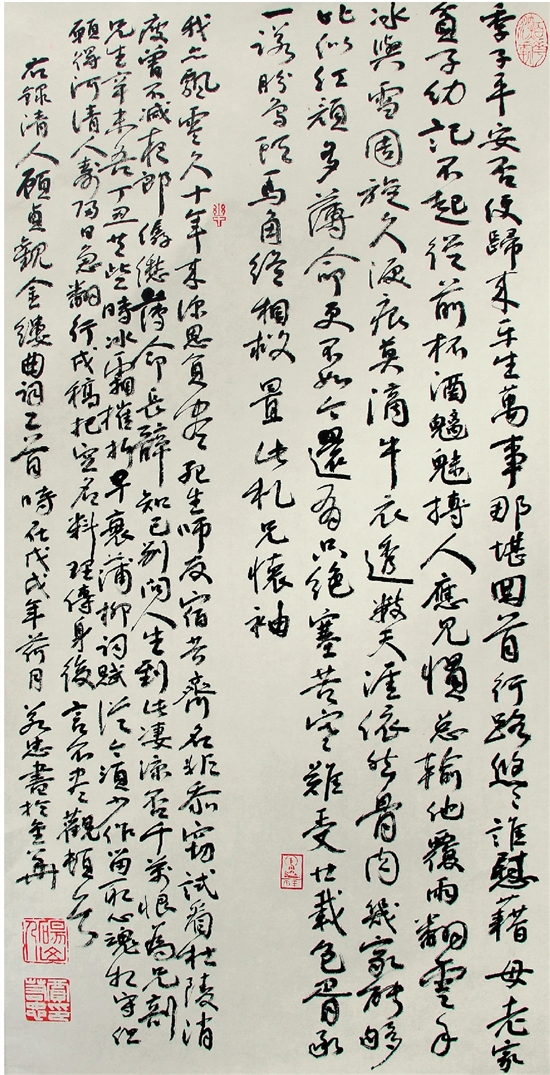 季子平安否便歸来平生萬事那堪回首行路悠々誰慰藉母老家
貧子幼記不起從前杯酒魑魅搏人應見慣总輸他覆雨翻雲手
冰與雪周旋久淚痕莫滴牛衣透數天涯依然骨肉幾家能夠
比似紅顏多薄命更不如今還有只絕塞苦寒難受廿載包胥承
一諾盼烏頭馬角終相救置此札兄懷袖
我亦飄零久十年来深恩負盡死生師友宿昔齊名非忝竊試看杜陵消
瘦曾不減夜郎僝僽薄命長辭知己別問人生到此凄凉否千萬恨為兄剖
兄生辛未吾丁丑共些時冰霜摧折早衰蒲柳詞賦從今須少作留取心魂相守但
願得河清人壽歸日急翻行戍稿把空名料理傳身後言不盡觀頓首
右錄清人顧貞觀金縷曲詞二首時在戊戌年荷月若忠書於金華